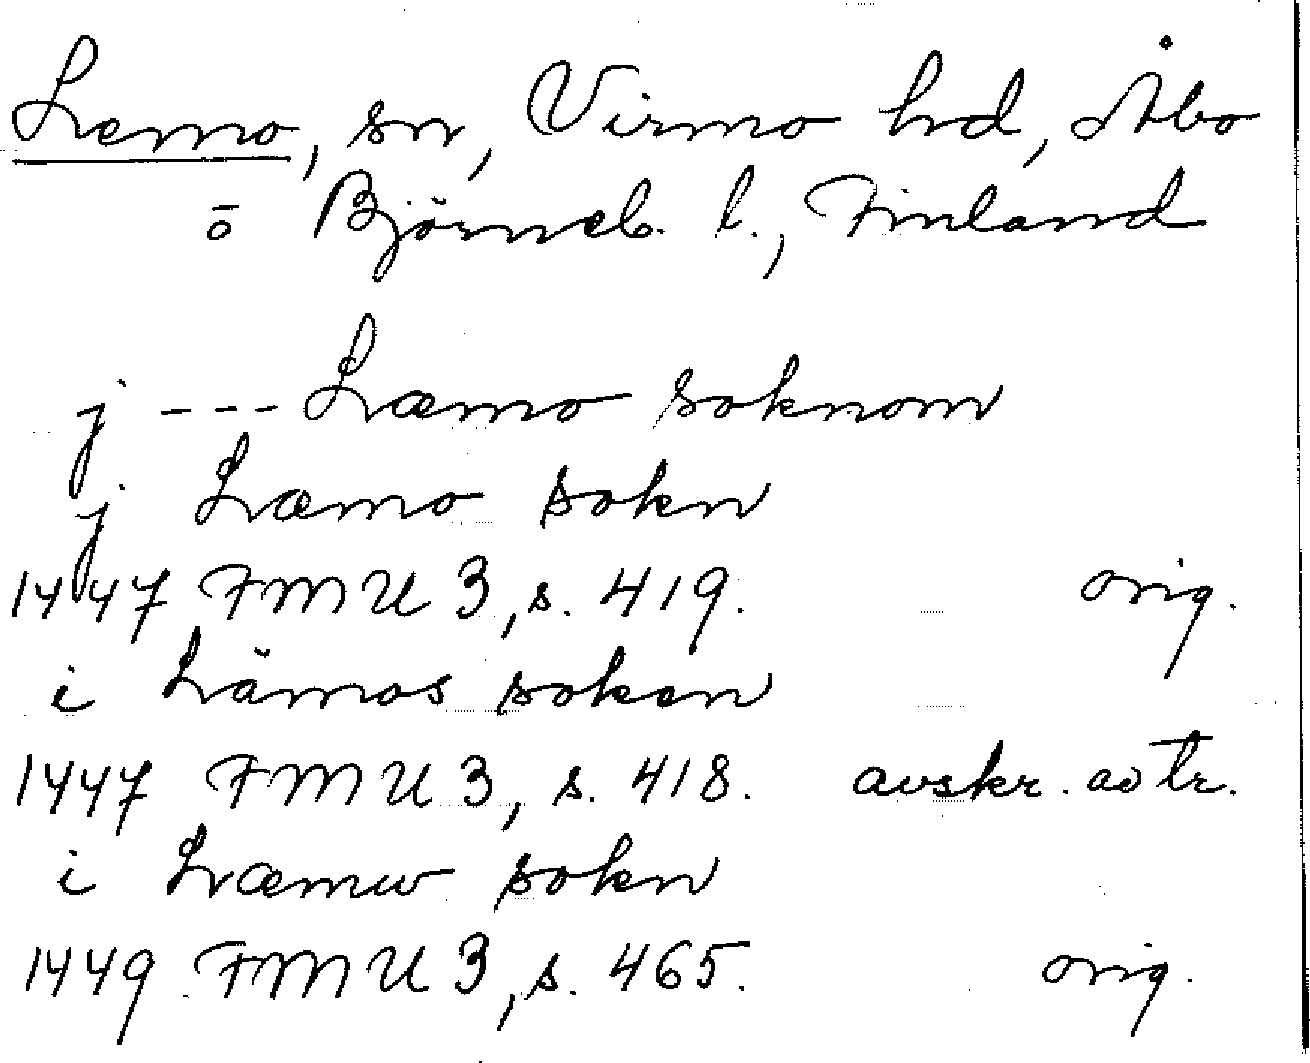 Lemo, sn, Virmo hd, Åbo
o Björneb. l., Finland
j --- Læmo soknom
j Læmo sokn
1447 FMU 3, s. 419. orig.
i Lämos soken
1447 FMU 3, s. 418. avskr. av tr.
i Læmw sokn
1449 FMU 3, s. 465. orig.